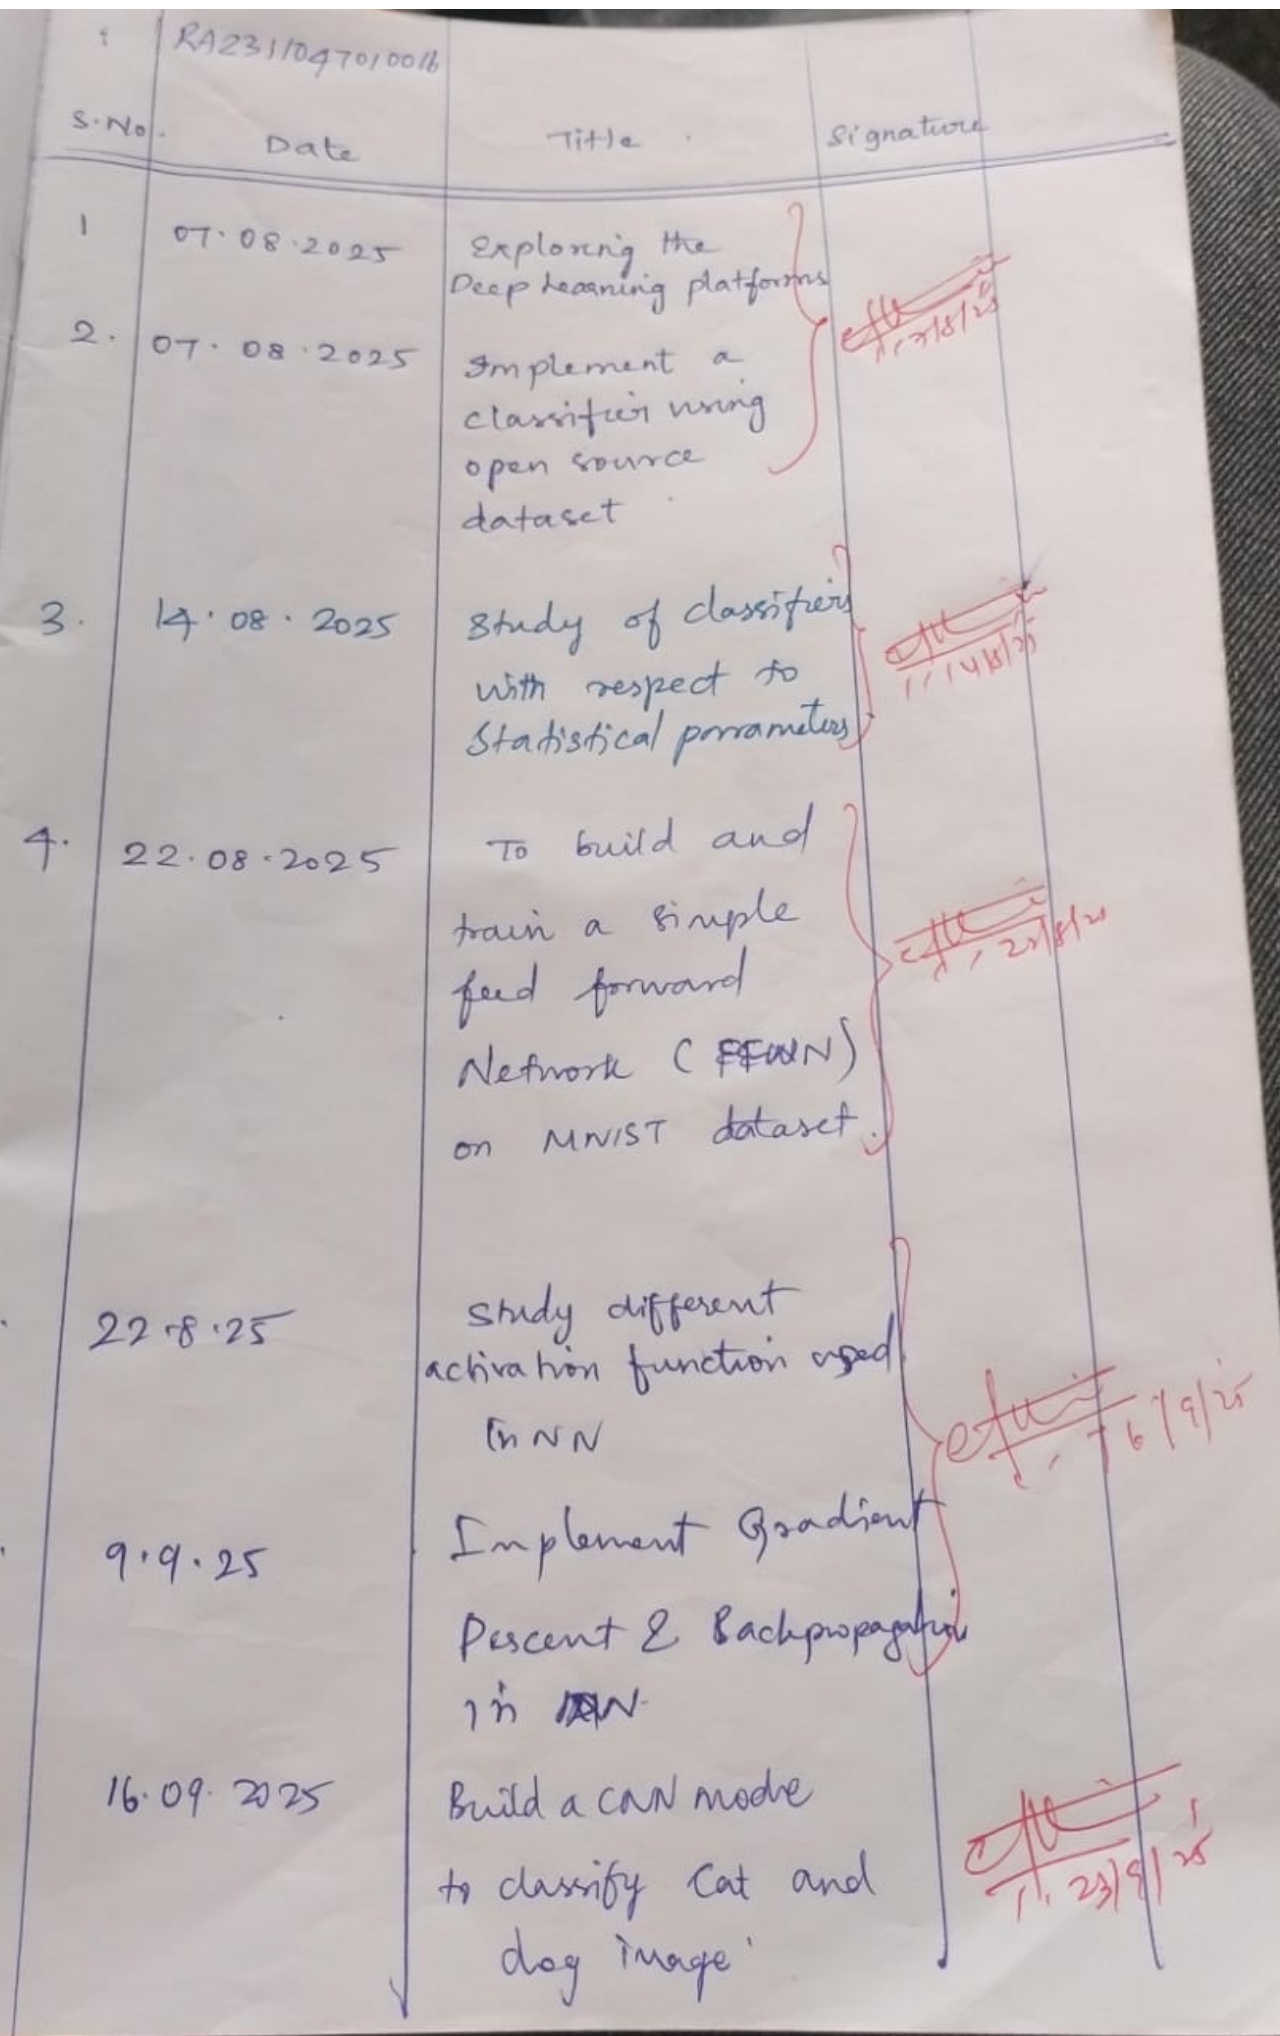 RA2311047010016
S.No. Date Title Signature
1 07.08.2025 Exploring the
Deep Learning platforms
7/8/25
2. 07.08.2025 Implement a
classifier using
open source
dataset
3. 14.08.2025 Study of classifiers
with respect to
Statistical parrameters
14/8/25
4. 22.08.2025 To build and
train a simple
feed forward
Network (FFNN)
on MNIST dataset.
22/8/25
22.8.25 Study different
activation function used
in NN
16/9/25
9.9.25 Implement Gradient
Descent & Backpropagation
in
16.09.2025 Build a CNN mode
to classify Cat and
dog image
23/9/25